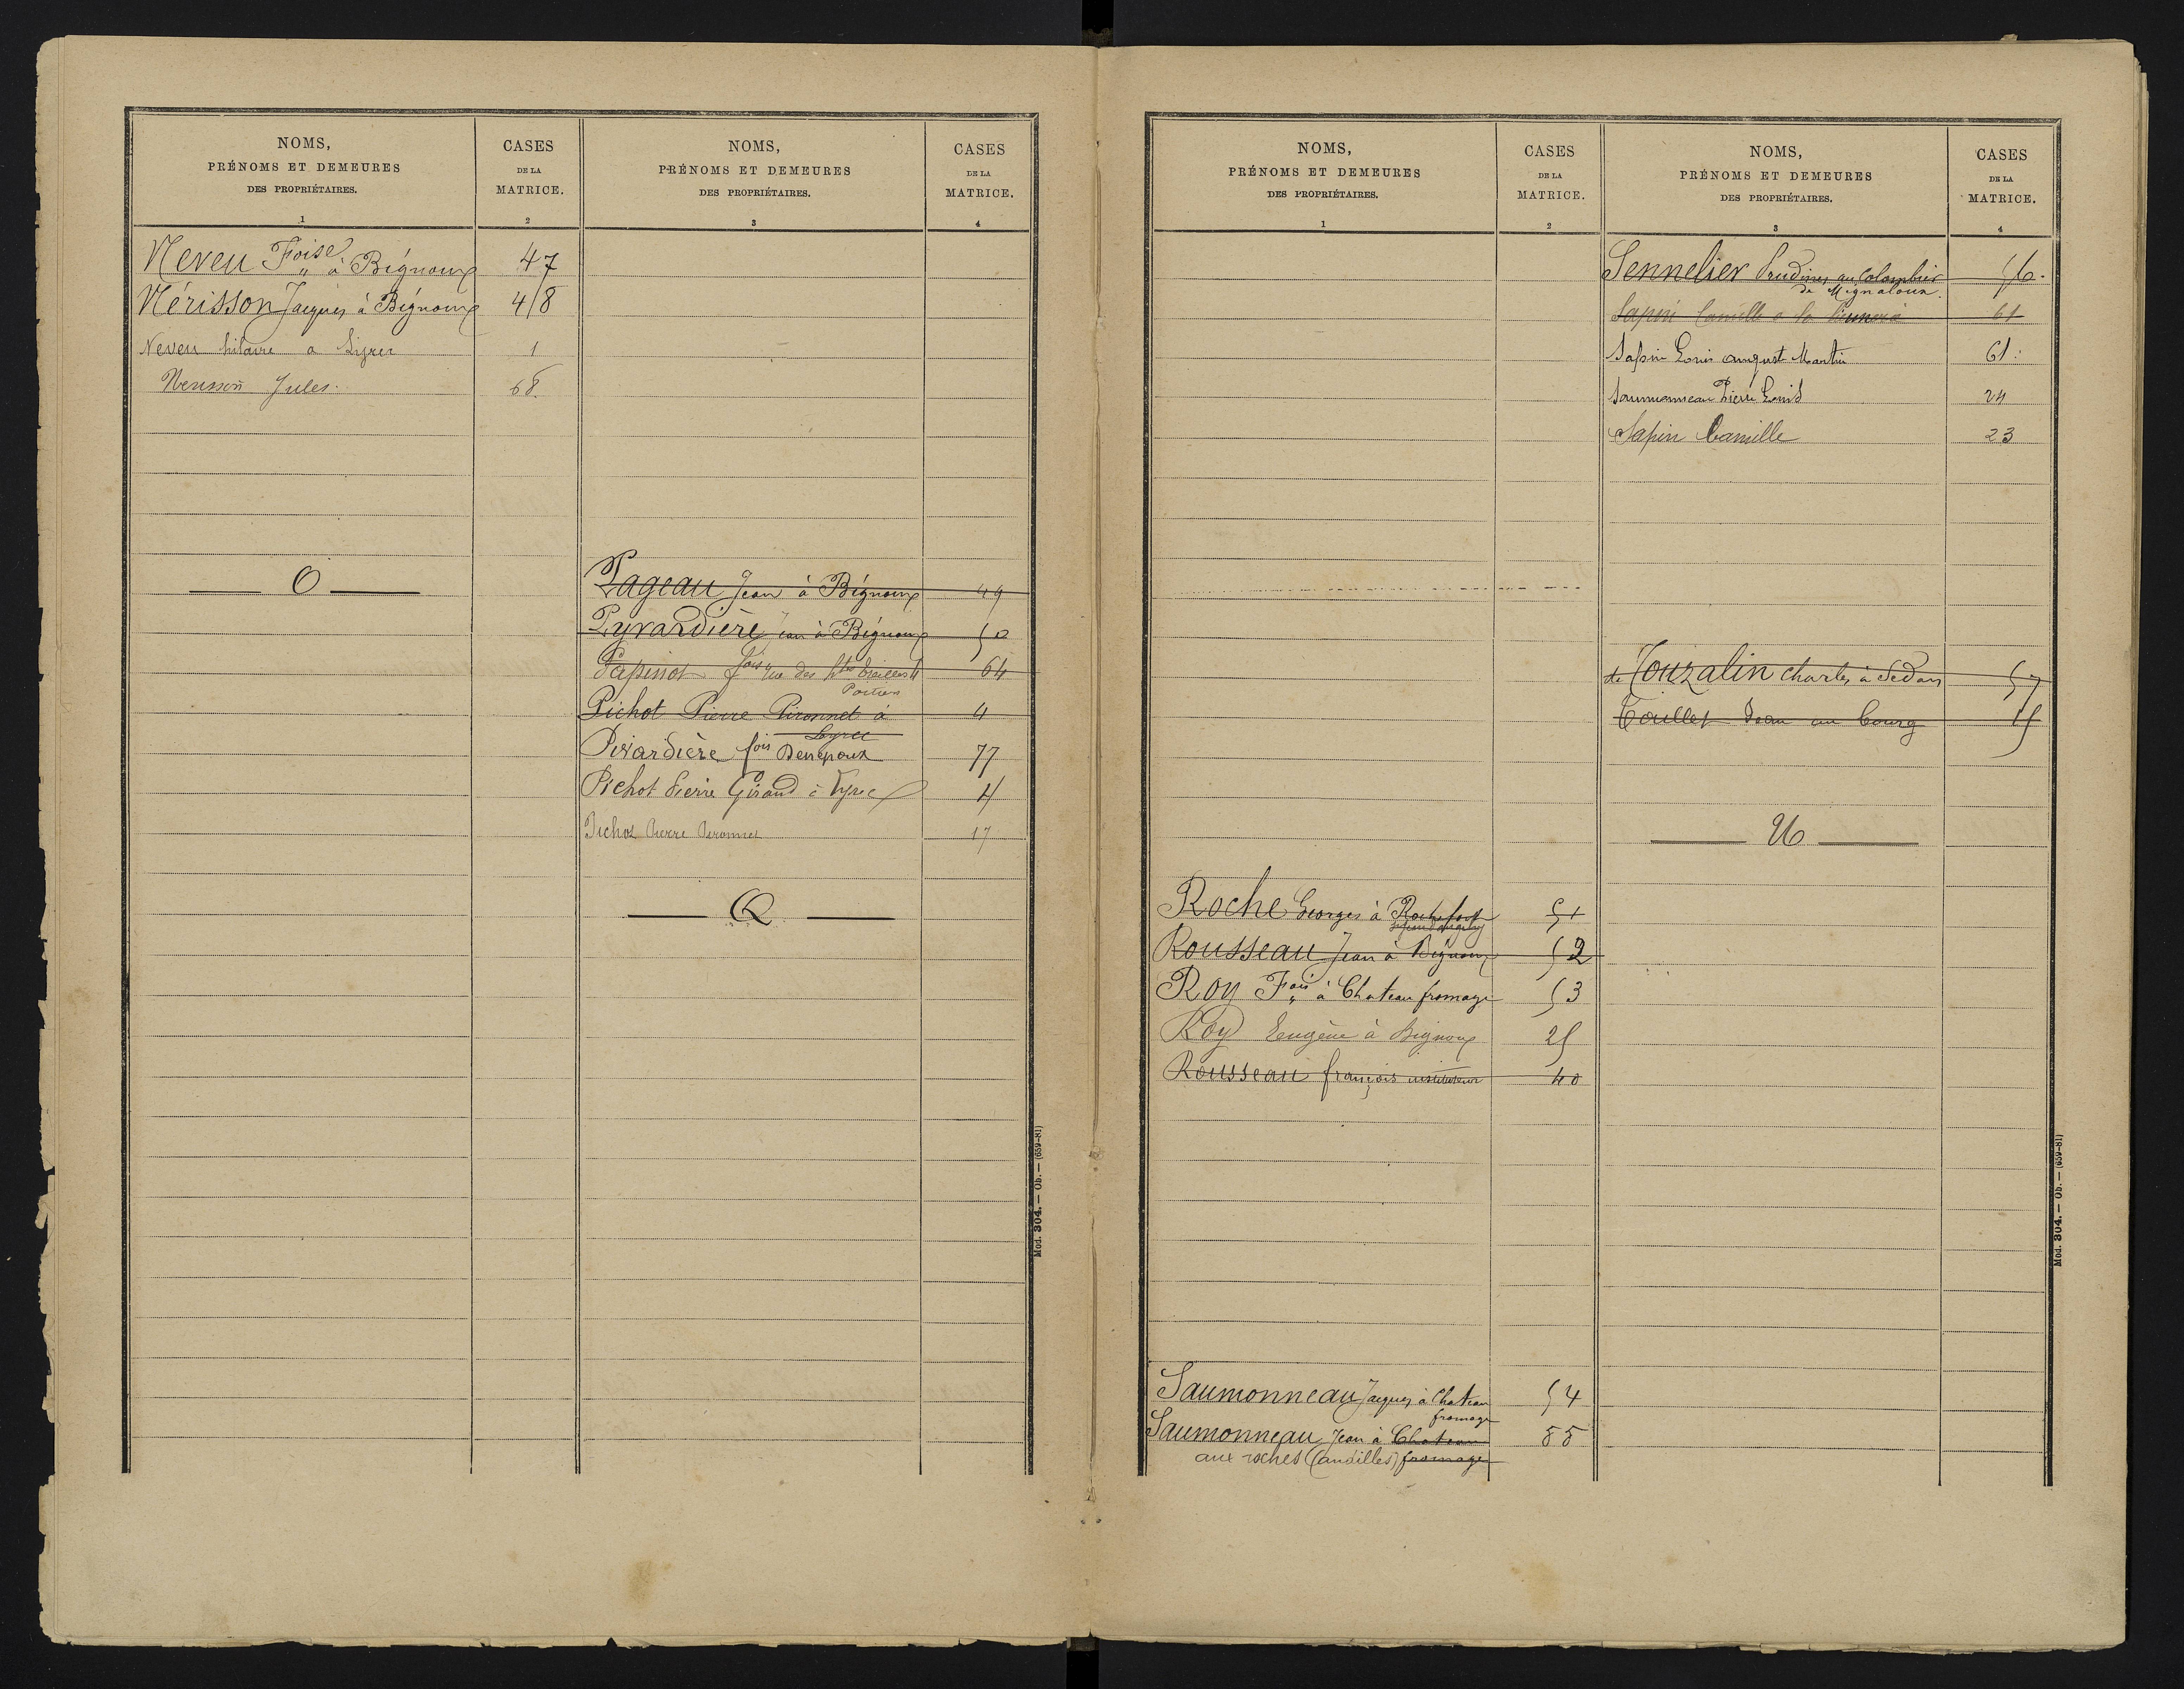 NOMS,
PRÉNOMS ET DEMEURES
DES PROPRIÉTAIRES.
1
CASES
DE LA
MATRICE.
2
Neveu Foise à Bignoux 47
Nérisson Jacques à Bignoux 48
Neveu hilaire a 1
Jules 68.
O
NOMS,
PRÉNOMS ET DEMEURES
DES PROPRIÉTAIRES.
3
CASES
DE LA
MATRICE.
4
Pageau Jean à Bignoux 49
Pyvardière Jean à Bignoux 50
Papinot fois rue des 64
Poitiers
Pichot Pierre Pironnet à 4
Pivardière fois 77
Pichot Pierre Giraud à 4
Pichot Pierre Peronnet 17
Q
Mod. 304. — Ob. — (659-81)
NOMS,
PRÉNOMS ET DEMEURES
DES PROPRIÉTAIRES.
1
CASES
DE LA
MATRICE.
2
Roche Georges à Rochefort 51
Rousseau Jean à Bignoux 52
Roy Fois à Chateau fromage 53
Roy Eugène à Bignoux 25
Rousseau françois instituteur 40
Saumonneau Jacques à Chateau 54
fromage
Saumonneau Jean à Chateau 55
aux roches (andilles) fromage
NOMS,
PRÉNOMS ET DEMEURES
DES PROPRIÉTAIRES.
3
CASES
DE LA
MATRICE.
4
Sennelier au Colombier 56.
de Mignaloux.
Sapin Camille a la 61
Sapin Louis august Martin 61.
Saumonneau Pierre Louis 24
Sapin Camille 23
de Touzalin Charles à Sedan 57
Jean au bourg 15
U
Mod. 304. — Ob. — (659-81)